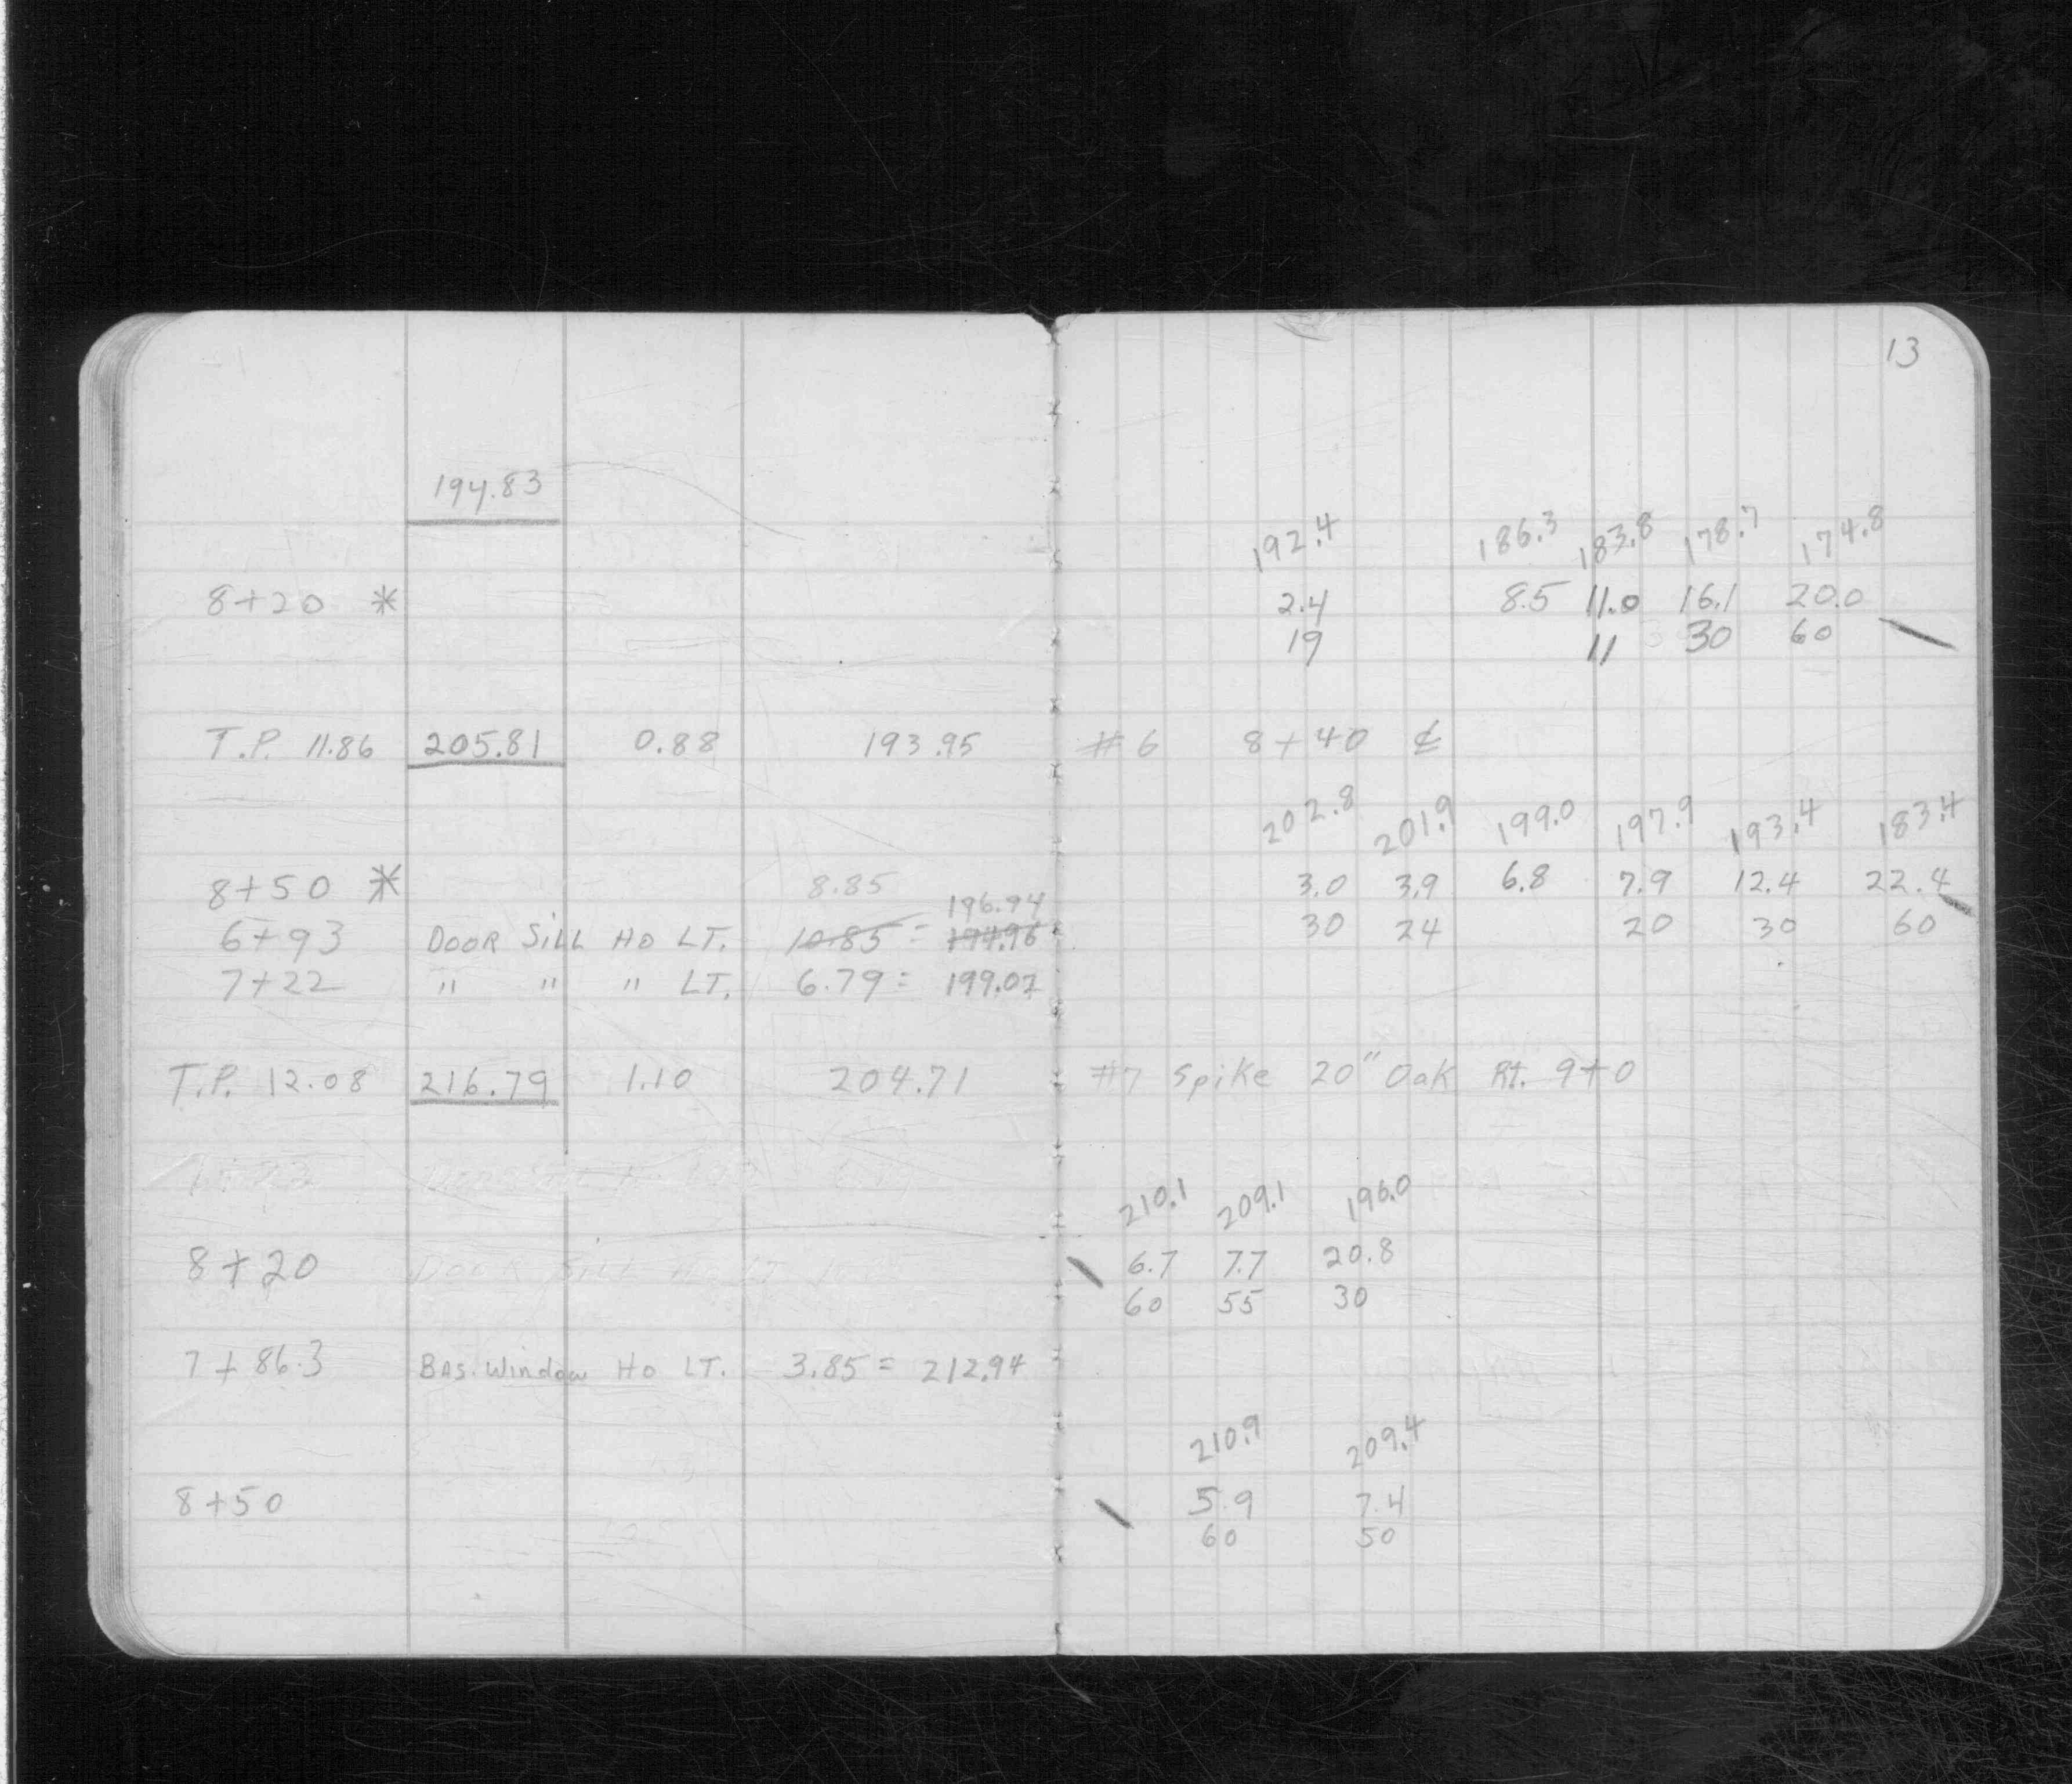 13
194.83
192.4 186.3 183.8 178.7 174.8
8+20 * 2.4 8.5 11.0 16.1 20.0
19 11 30 60
T.P. 11.86 205.81 0.88 193.95 #6 8+40 ℄
202.8 201.9 199.0 197.9 193.4 183.4
8+50 * 8.85 3.0 3.9 6.8 7.9 12.4 22.4
196.94
6+93 DOOR SILL HO LT. 10.85 = 194.96 30 24 20 30 60
7+22 " " " LT. 6.79 = 199.02
T.P. 12.08 216.79 1.10 204.71 #7 Spike 20" Oak Rt. 9+0
7+22
210.1 209.1 196.0
8+20 DOOR SILL HO LT 6.7 7.7 20.8
60 55 30
7+86.3 BAS. Window HO LT. 3.85 = 212.94
210.9 209.4
8+50 5.9 7.4
60 50